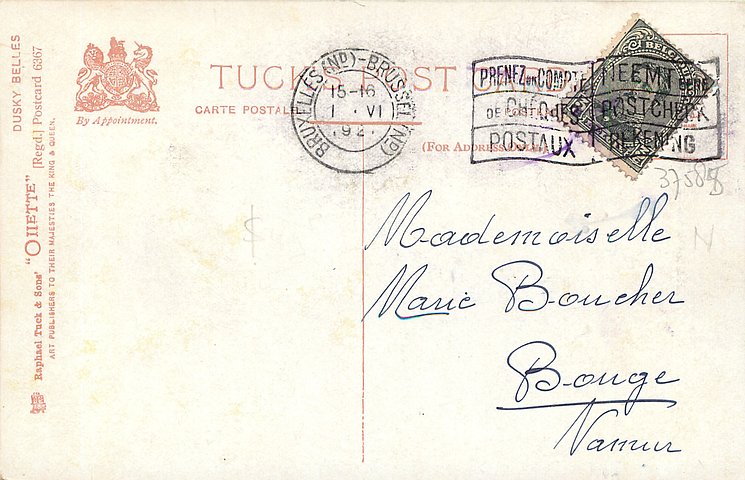 DUSKY BELLES
"OILETTE" [Regd.] Postcard 6367
Raphael Tuck & Sons'
ART PUBLISHERS TO THEIR MAJESTIES THE KING & QUEEN.
By Appointment.
TUCK'S POST
CARTE POSTALE
(FOR ADDRESS ONLY)
BRUXELLES (ND)-BRUSSEL (ND)
15-16
1 · VI
192
PRENEZ UN COMPTE
DE CHÈQUES
POSTAUX
NEEMT EENE
POSTCHECK
REKENING
37588
N
Mademoiselle
Marie Boucher
Bouge
Namur